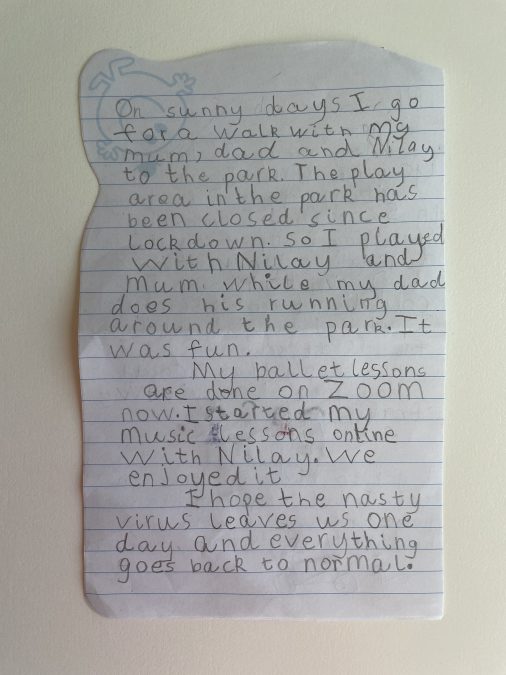 On sunny days I go
for a walk with my
mum, dad and Nilay
to the park. The play
area in the park has
been closed since
lockdown. So I played
with Nilay and
mum while my dad
does his running
around the park. It
was fun.
My ballet lessons
are done on ZOOM
now. I started my
music lessons online
with Nilay. We
enjoyed it
I hope the nasty
virus leaves us one
day and everything
goes back to normal.